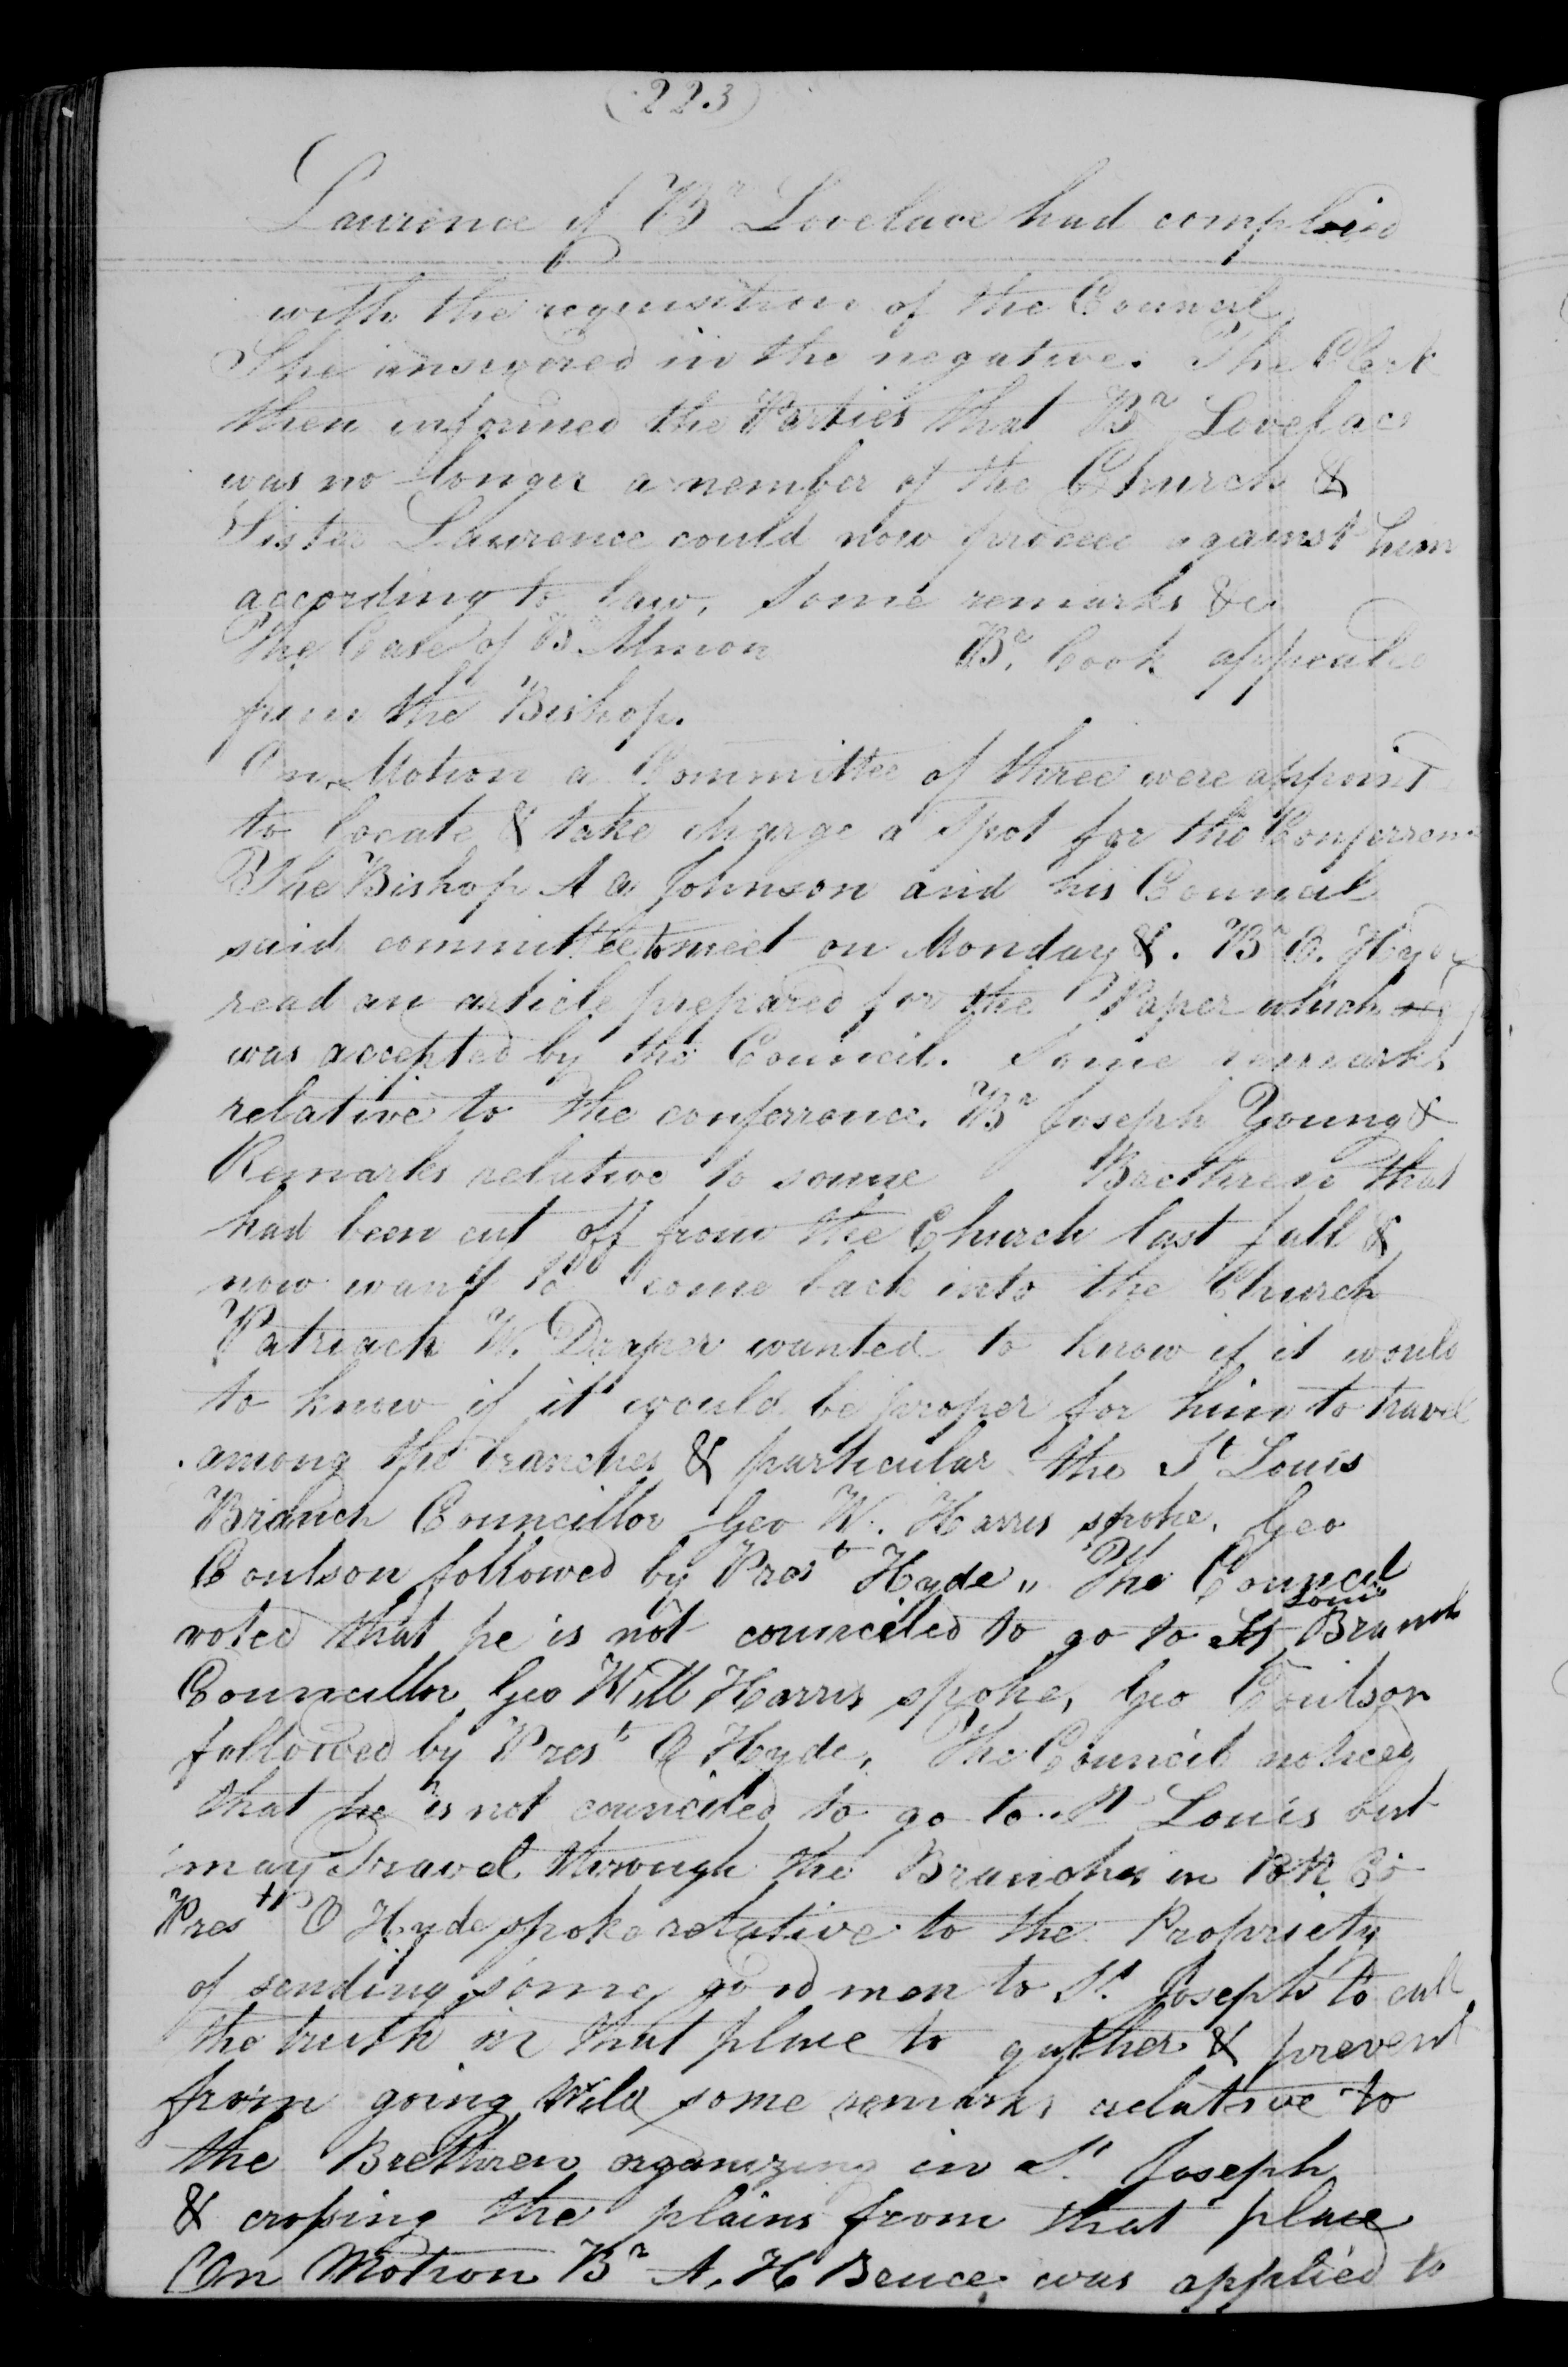 (223)
Laurence if Br Lovelace had complied
with the requisition of the Council
She answered in the negative. The Clerk
then informed the Parties that Br Lovelace
was no longer a member of the Church &
Sister Laurence could now proceed against him
according to law, some remarks &c
The Case of Br Almon Br. Cook appealed
from the Bishop.
On Motion a Committee of three were appoint
to locate & take charge a Spot for the Conferrence
The Bishop A a Johnson and his Council
said committee to meet on Monday &. Br O. Hyde
read an article prepared for the Paper which
was accepted by the Council. Some remarks
relative to the conferrence. Br Joseph Young &
Remarks relative to some Brethren that
had been cut off from the Church last fall &
now want to come back into the Church
Patriach W. Draper wanted to know if it would
to know if it would be proper for him to travel
among the branches & particular the St Louis
Branch Councillor Geo W. Harris spoke. Geo
Coulson followed by Prest Hyde " The Council
voted that he is not counciled to go to St Louis Branch
Councillor Geo Will Harris spoke, Geo Coulson
followed by Prest O Hyde, The Council noticed
that he is not counciled to go to St Louis but
may Travel through the Branches in Co
Prest O Hyde spoke relative to the Propriety
of sending some good men to St. Joseph to call
the truth in that place to gather & prevent
from going Wild some remarks relative to
the Brethren organizing in St Joseph
& crossing the plains from that place
On Motion Br A, H Bence was applied to